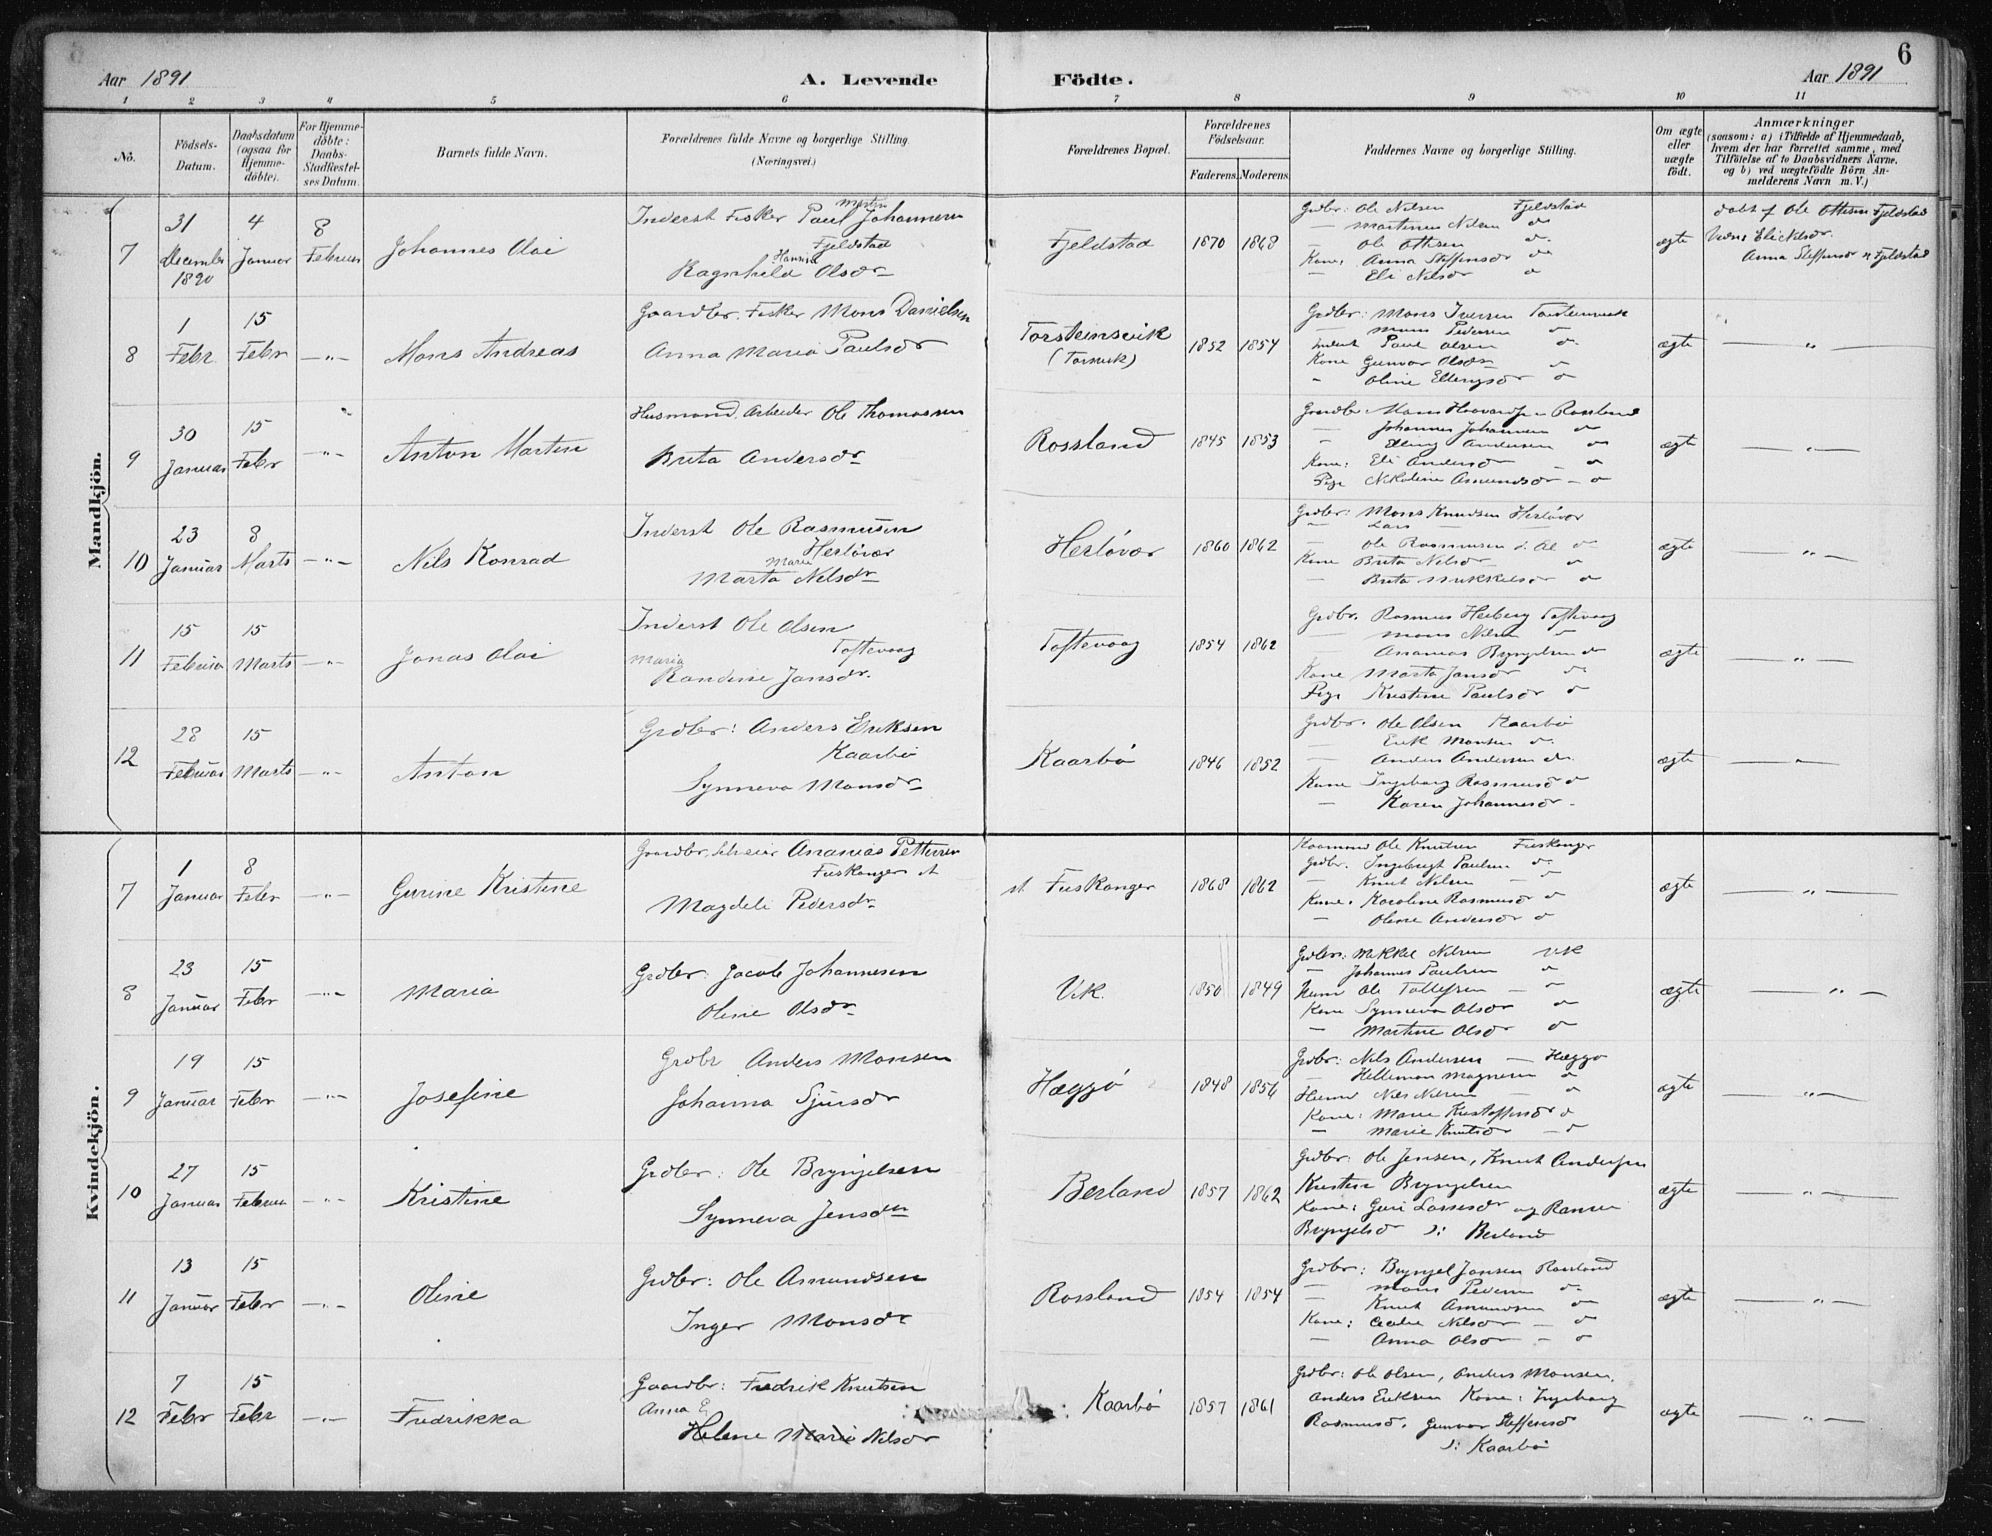 6
Aar 1891
A. Levende
Födte.
Aar 1891
1 2 3 4 5 6 7 8 9 10 11
No.
Födsels-
Datum.
Daabsdatum
(ogsaa for
Hjemme-
döbte).
For Hjemme-
döbte:
Daabs-
Stadfæstel-
ses Datum.
Barnets fulde Navn.
Forældrenes fulde Navne og borgerlige Stilling
(Næringsvei.)
Forældrenes Bopæl.
Forældrenes
Födselsaar.
Faderens. Moderens.
Faddernes Navne og borgerlige Stilling.
Om ægte
eller
uægte
født.
Anmærkninger
(saasom: a) i Tilfælde af Hjemmedaab,
hvem der har forrettet samme, med
Tilföielse af to Daabsvidners Navne,
og b) ved uægtefödte Börn An-
melderens Navn m. V.)
Mandkjön.
7
31
December
1890
4
Januar
8
Februar
Johannes Olai
Inderst Fisker Paul Martin Johannesen
Fjeldstad
Ragnhild Hanna Olsdr
Fjeldstad
1870 1868
Grdbr: Ole Nilsen Fjeldstad
— Martinus Nilsen do
— Ole Ottesen do
Kone: Anna Steffensdr do
— Eli Nilsdr do
ægte
døbt af Ole Ottesen Fjeldstad
Vidne Eli Nilsdr.
Anna Steffensdr Fjeldstad
8
1
Febr
15
Febr
—"—
Mons Andreas
Gaardbr. Fisker Mons Danielsen
Anna Maria Paulsdr
Torsteinsvik
(Torsvik)
1852 1854
Grdbr: Mons Iversen Torsteinsvik
— Mons Pedersen do
Inderst Paul Olsen do
Kone Gunvor Olsdr do
" Oline Ellingsdr do
ægte
— " —
9
30
Januar
15
Febr
—"—
Anton Martin
Husmand. Arbeider Ole Thomassen
Brita Andersdr
Rossland
1845 1853
Gaardbr. Mons Haavardsen Rossland
— Johannes Johannesen do
" Elling Andersen do
Kone: Eli Andersdr — do
Pige Nikoline Amundsdr — do
ægte
— " —
10
23
Januar
8
Marts
—"—
Nils Konrad
Inderst Ole Rasmussen
Herløvær
Marta Marie Nilsdr
Herløvær
1860 1862
Grdbr: Mons Knudsen Herløvær
" Lars —
— Ole Rasmussen do
Kone Brita Nilsdr do
— Brita Mikkelsdr do
ægte
— " —
11
15
Februar
15
Marts
—"—
Jonas Olai
Inderst Ole Olsen
Toftevaag
Maria
Randine Jansdr.
Toftevaag
1854 1862
Grdbr. Rasmus Herberg Toftevaag
— Mons Nilsen do
— Ananias Bryngelsen do
Kone Marta Jansdr do
Pige Kristine Paulsdr do
ægte
— " —
12
28
Februar
15
Marts
—"—
Anton
Grdbr: Anders Eriksen
Kaarbø
Synneva Monsdr
Kaarbø
1846 1852
Grdbr. Ole Olsen Kaarbø
— Erik Monsen do.
— Anders Andersen do.
Kone Ingeborg Rasmusdr do
— Karen Johannesdr —
ægte
— " —
Kvindekjön.
7
1
Januar
8
Febr
—"—
Gurine Kristine
Gaardbr. Ananias Pettersen
Futskanger
Magdeli Pedersdr
Futskanger
1868 1862
Ole Knutsen Futskanger
Grdbr. Ingebrigt Paulsen do
— Knut Nilsen — do
Kone: Karoline Rasmusdr do
— Oline Andersdr do
ægte
— " —
8
23
Januar
15
Febr
—"—
Maria
Grdbr. Jacob Johannesen
Oline Olsdr
Vik.
1850 1849
Grdbr: Mikkel Nilsen Vik
— Johannes Paulsen do
Husm Ole Tollefsen — do
Kone Synneva Olsdr do
— Martine Olsdr do
ægte
— " —
9
19
Januar
15
Febr
—"—
Josefine
Grdbr Anders Monsen
Johanna Sjursdr
Hæggø
1848 1856
Grdbr: Nils Andersen — Hæggø
— Hellemon Magnesen do
Husmd Nils Nilsen — do
Kone: Marie Kristoffersdr do
— Marie Knutsdr — do
ægte
— " —
10
27
Januar
15
Februar
—"—
Kristine
Grdbr: Ole Bryngelsen
Synneva Jensdr
Berland
1857 1862
Grdbr: Ole Jensen, Knut Andersen
Kristen Bryngelsen
Kone: Guri Larsdr og
Bryngelsdr Berland
ægte
— " —
11
13
Januar
15
Febr
—"—
Oline
Grdbr: Ole Amundsen
Inger Monsdr
Rossland
1854 1854
Grdbr: Bryngel Jansen Rossland
— Mons Pedersen do
— Knut Amundsen do
Kone: Cecilie Nilsdr — do
— Anna Olsdr — do
ægte
— " —
12
7
Febr
15
Febr
—"—
Fredrikka
Gaardbr: Fredrik Knutsen
Anna E
Helene Marie Nilsdr
Kaarbø
1857 1861
Grdbr: Ole Olsen, Anders Monsen.
Anders Eriksen Kone: Ingeborg
Rasmusd. Gunvor Steffensd
Kaarbø
ægte
— " —